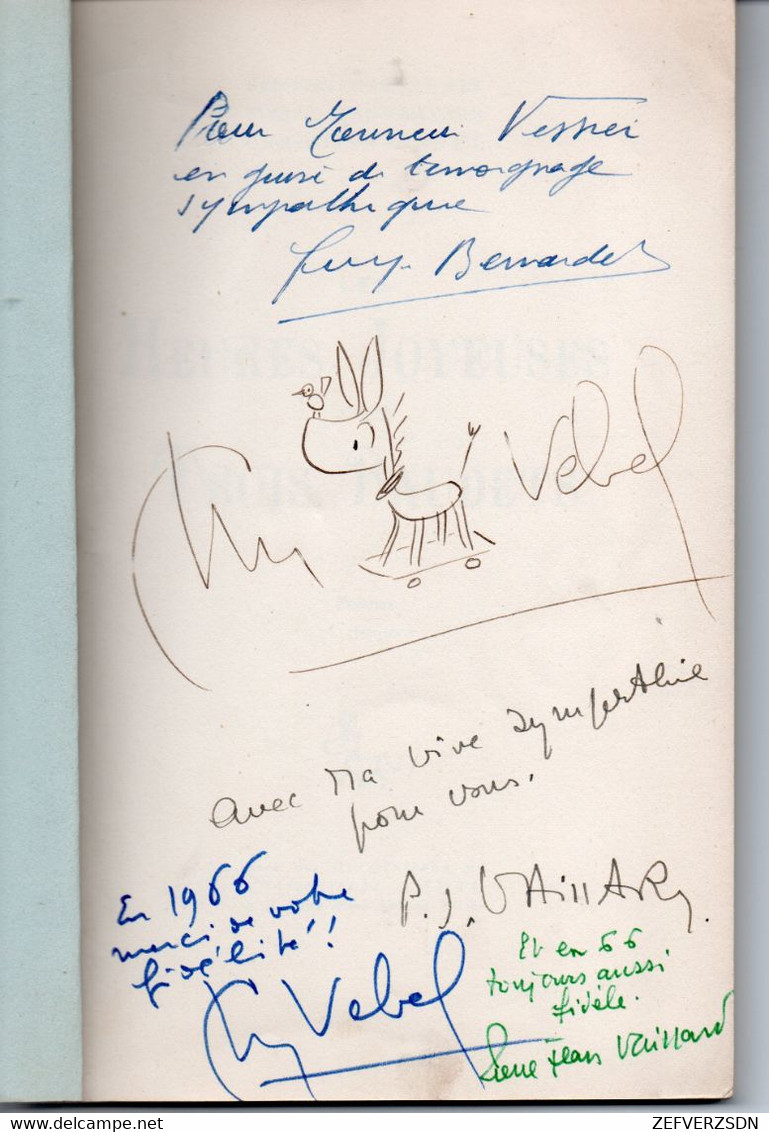 Pour Monsieur Vessier
en guise de temoignage
sympathique
Guy Bernardet
HEURES JOYEUSES
Chr Vebel
avec ma vive sympathie
pour vous.
P. J. VAILLARD
En 1966
merci de votre
fidélité!!
Chr Vebel
Et en 66
toujours aussi
fidèle.
Pierre Jean Vaillard
ZEFVERZSDN